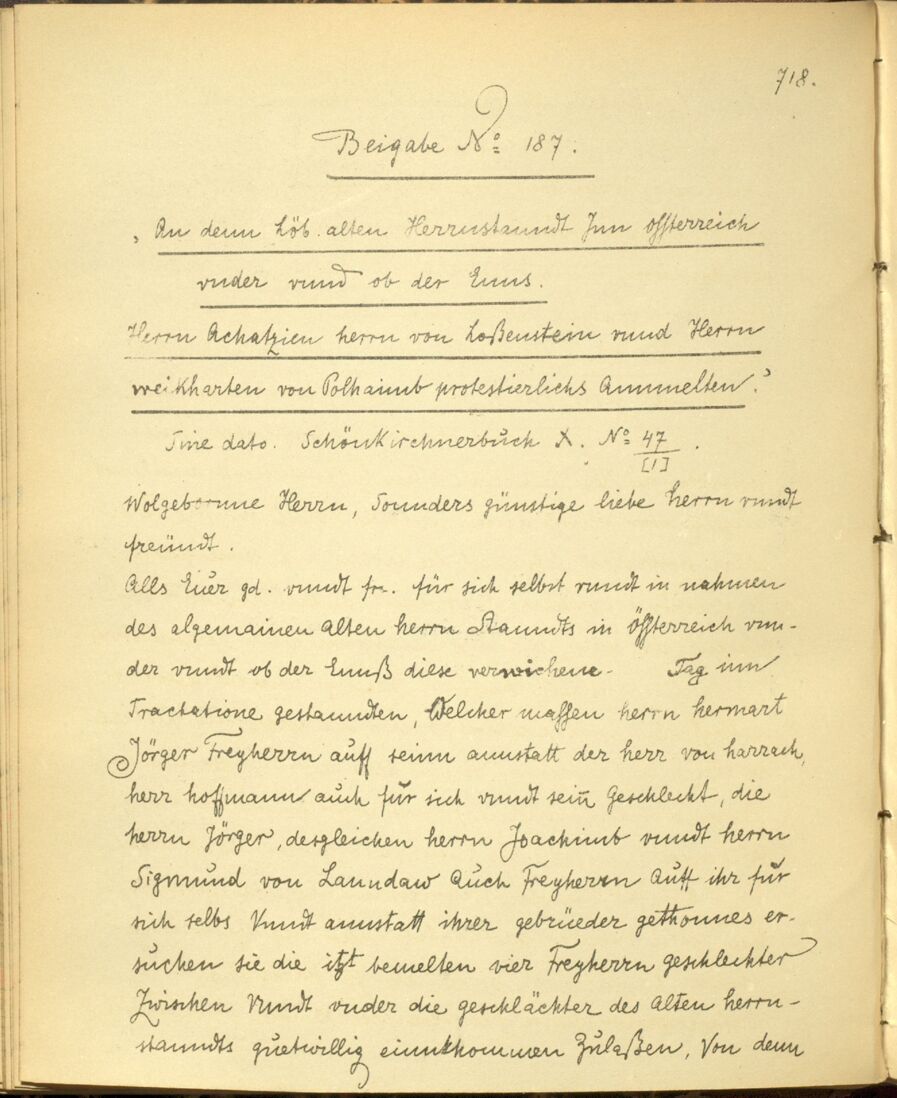 718.
Beigabe No. 187.
"An denn Löb. alten Herrnstanndt Inn össterreich
vnder vnnd ob der Enns.
Herrn Achatzien herrn von Loßenstein vnnd Herrn
weikharten von Polhaimb protestierlichs Anmelten."
Sine dato. Schönkirchnerbuch X. No. 47
[1]
Wolgebornne Herrn, Sonnders günstige liebe herrn vnndt
freündt.
Alls Euer gd. vnndt fr. für sich selbst vnndt in nahmen
des algemainen Alten herrn Stanndts in Össterreich vnn-
der vnndt ob der Ennß diese verwichene- Tag inn
Tractatione gestanndten, Welcher massen herrn hermart
Jörger Freyherrn auff seinn annstatt der herr von harrach,
herr hoffmann auch für sich vnndt sein Geschlecht, die
herrn Jörger, desgleichen herrn Joachimb vnndt herrn
Sigmund von Lanndaw Auch Freyherrn Auff ihr für
sich selbs Vnndt annstatt ihrer gebrüeder gethonnes er-
suchen sie die itzt bemelten vier Freyherrn geschlechter
Zwischen Vnndt vnder die geschlächter des Alten herrn-
stanndts guetwillig einnkhommen Zulaßen, Von denn